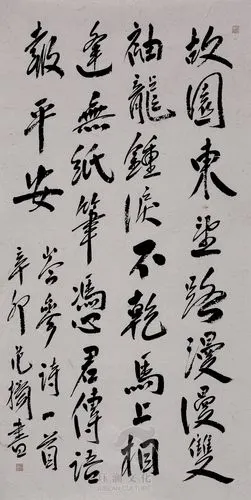 故園東望路漫漫雙
袖龍鍾淚不乾馬上相
逢無紙筆馮君傳語
報平安
岑參詩一首
辛卯范擷書